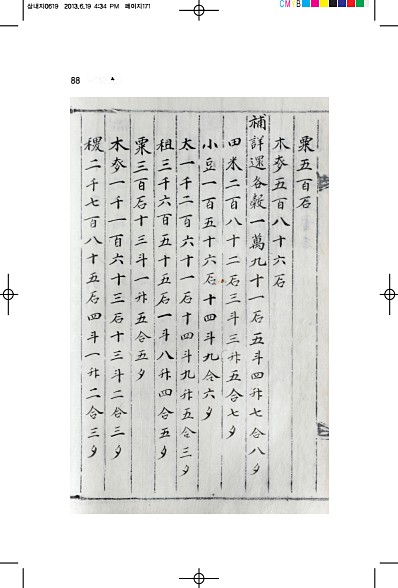 삼내지0619 2013.6.19 4:34 PM 페이지171
CMYB
88
粟五百石
木麥五百八十六石
補詳還各穀一萬九十一石五斗四升七合八夕
田米二百八十二石三斗三升五合七夕
小豆一百五十六石十四斗九合六夕
太一千二百六十一石十四斗九升五合三夕
租三千六百五十五石一斗八升四合五夕
粟三百石十三斗一升五合五夕
木麥一千一百六十三石十三斗二合三夕
稷二千七百八十五石四斗一升二合三夕